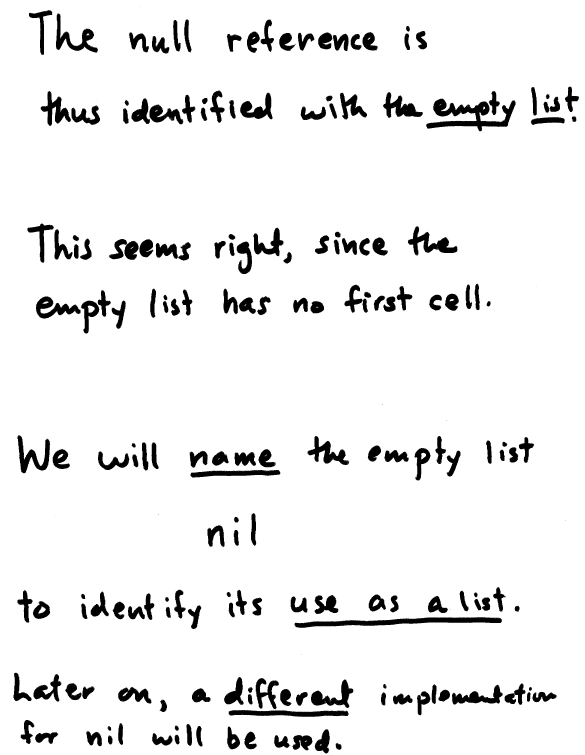 The null reference is
thus identified with the empty list.
This seems right, since the
empty list has no first cell.
We will name the empty list
nil
to identify its use as a list.
Later on, a different implementation
for nil will be used.